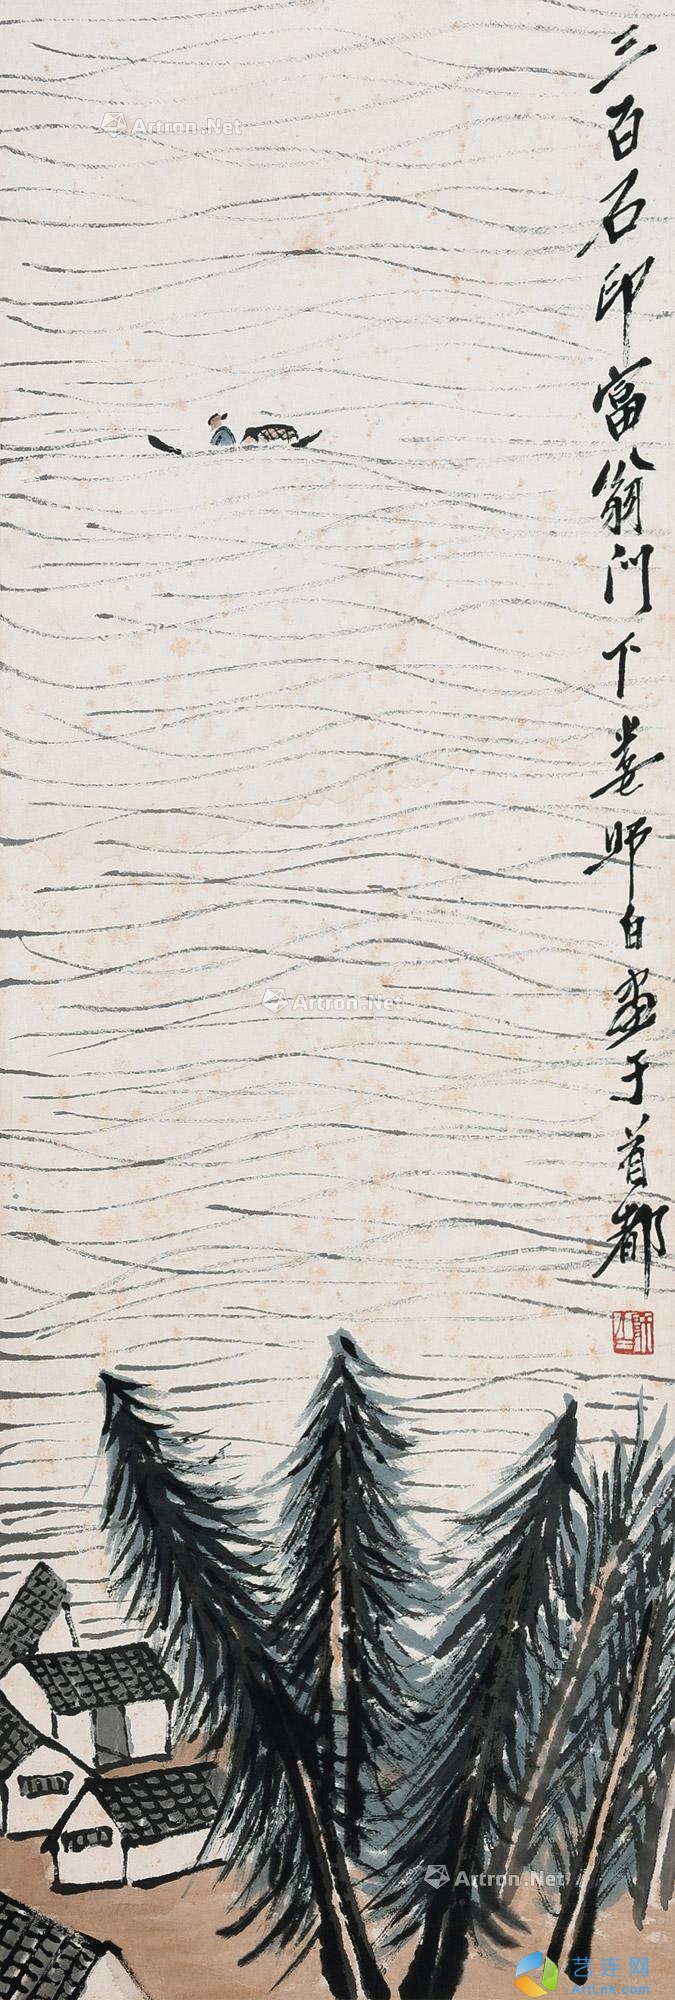 三百石印富翁门下娄师白画于首都
师白
Artron.Net
Artron.Net
Artron.Net
艺连网
ArtLnk.com